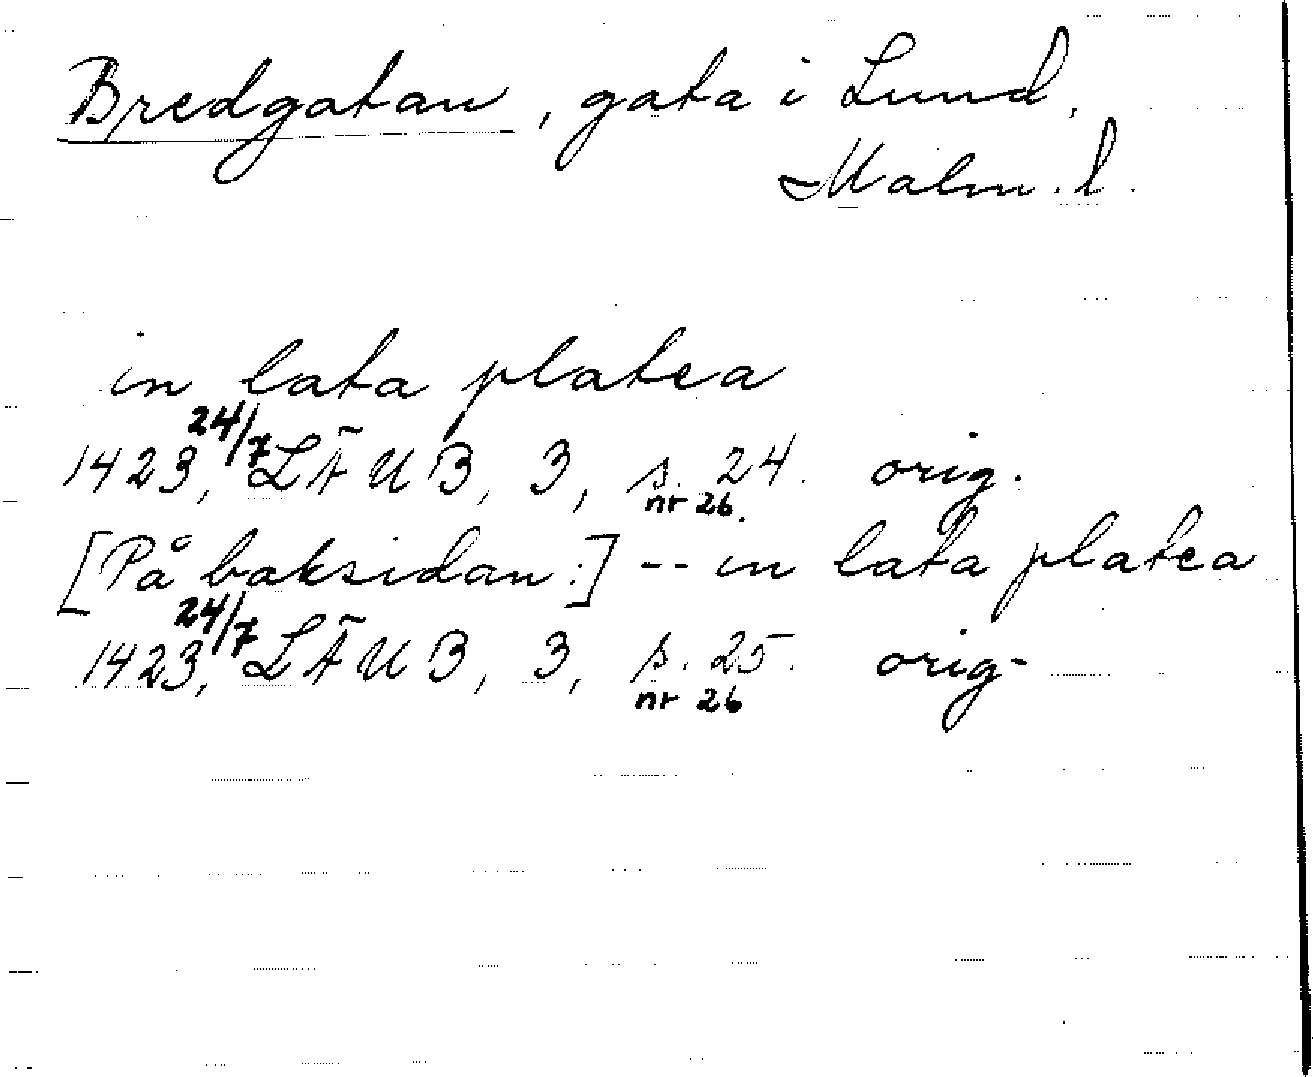 Bredgatan, gata i Lund,
Malm. l.
in lata platea
1423, 24/7 LÄUB, 3, s. 24. orig.
nr 26.
[På baksidan:] -- in lata platea
1423, 24/7 LÄUB, 3, s. 25. orig.
nr 26